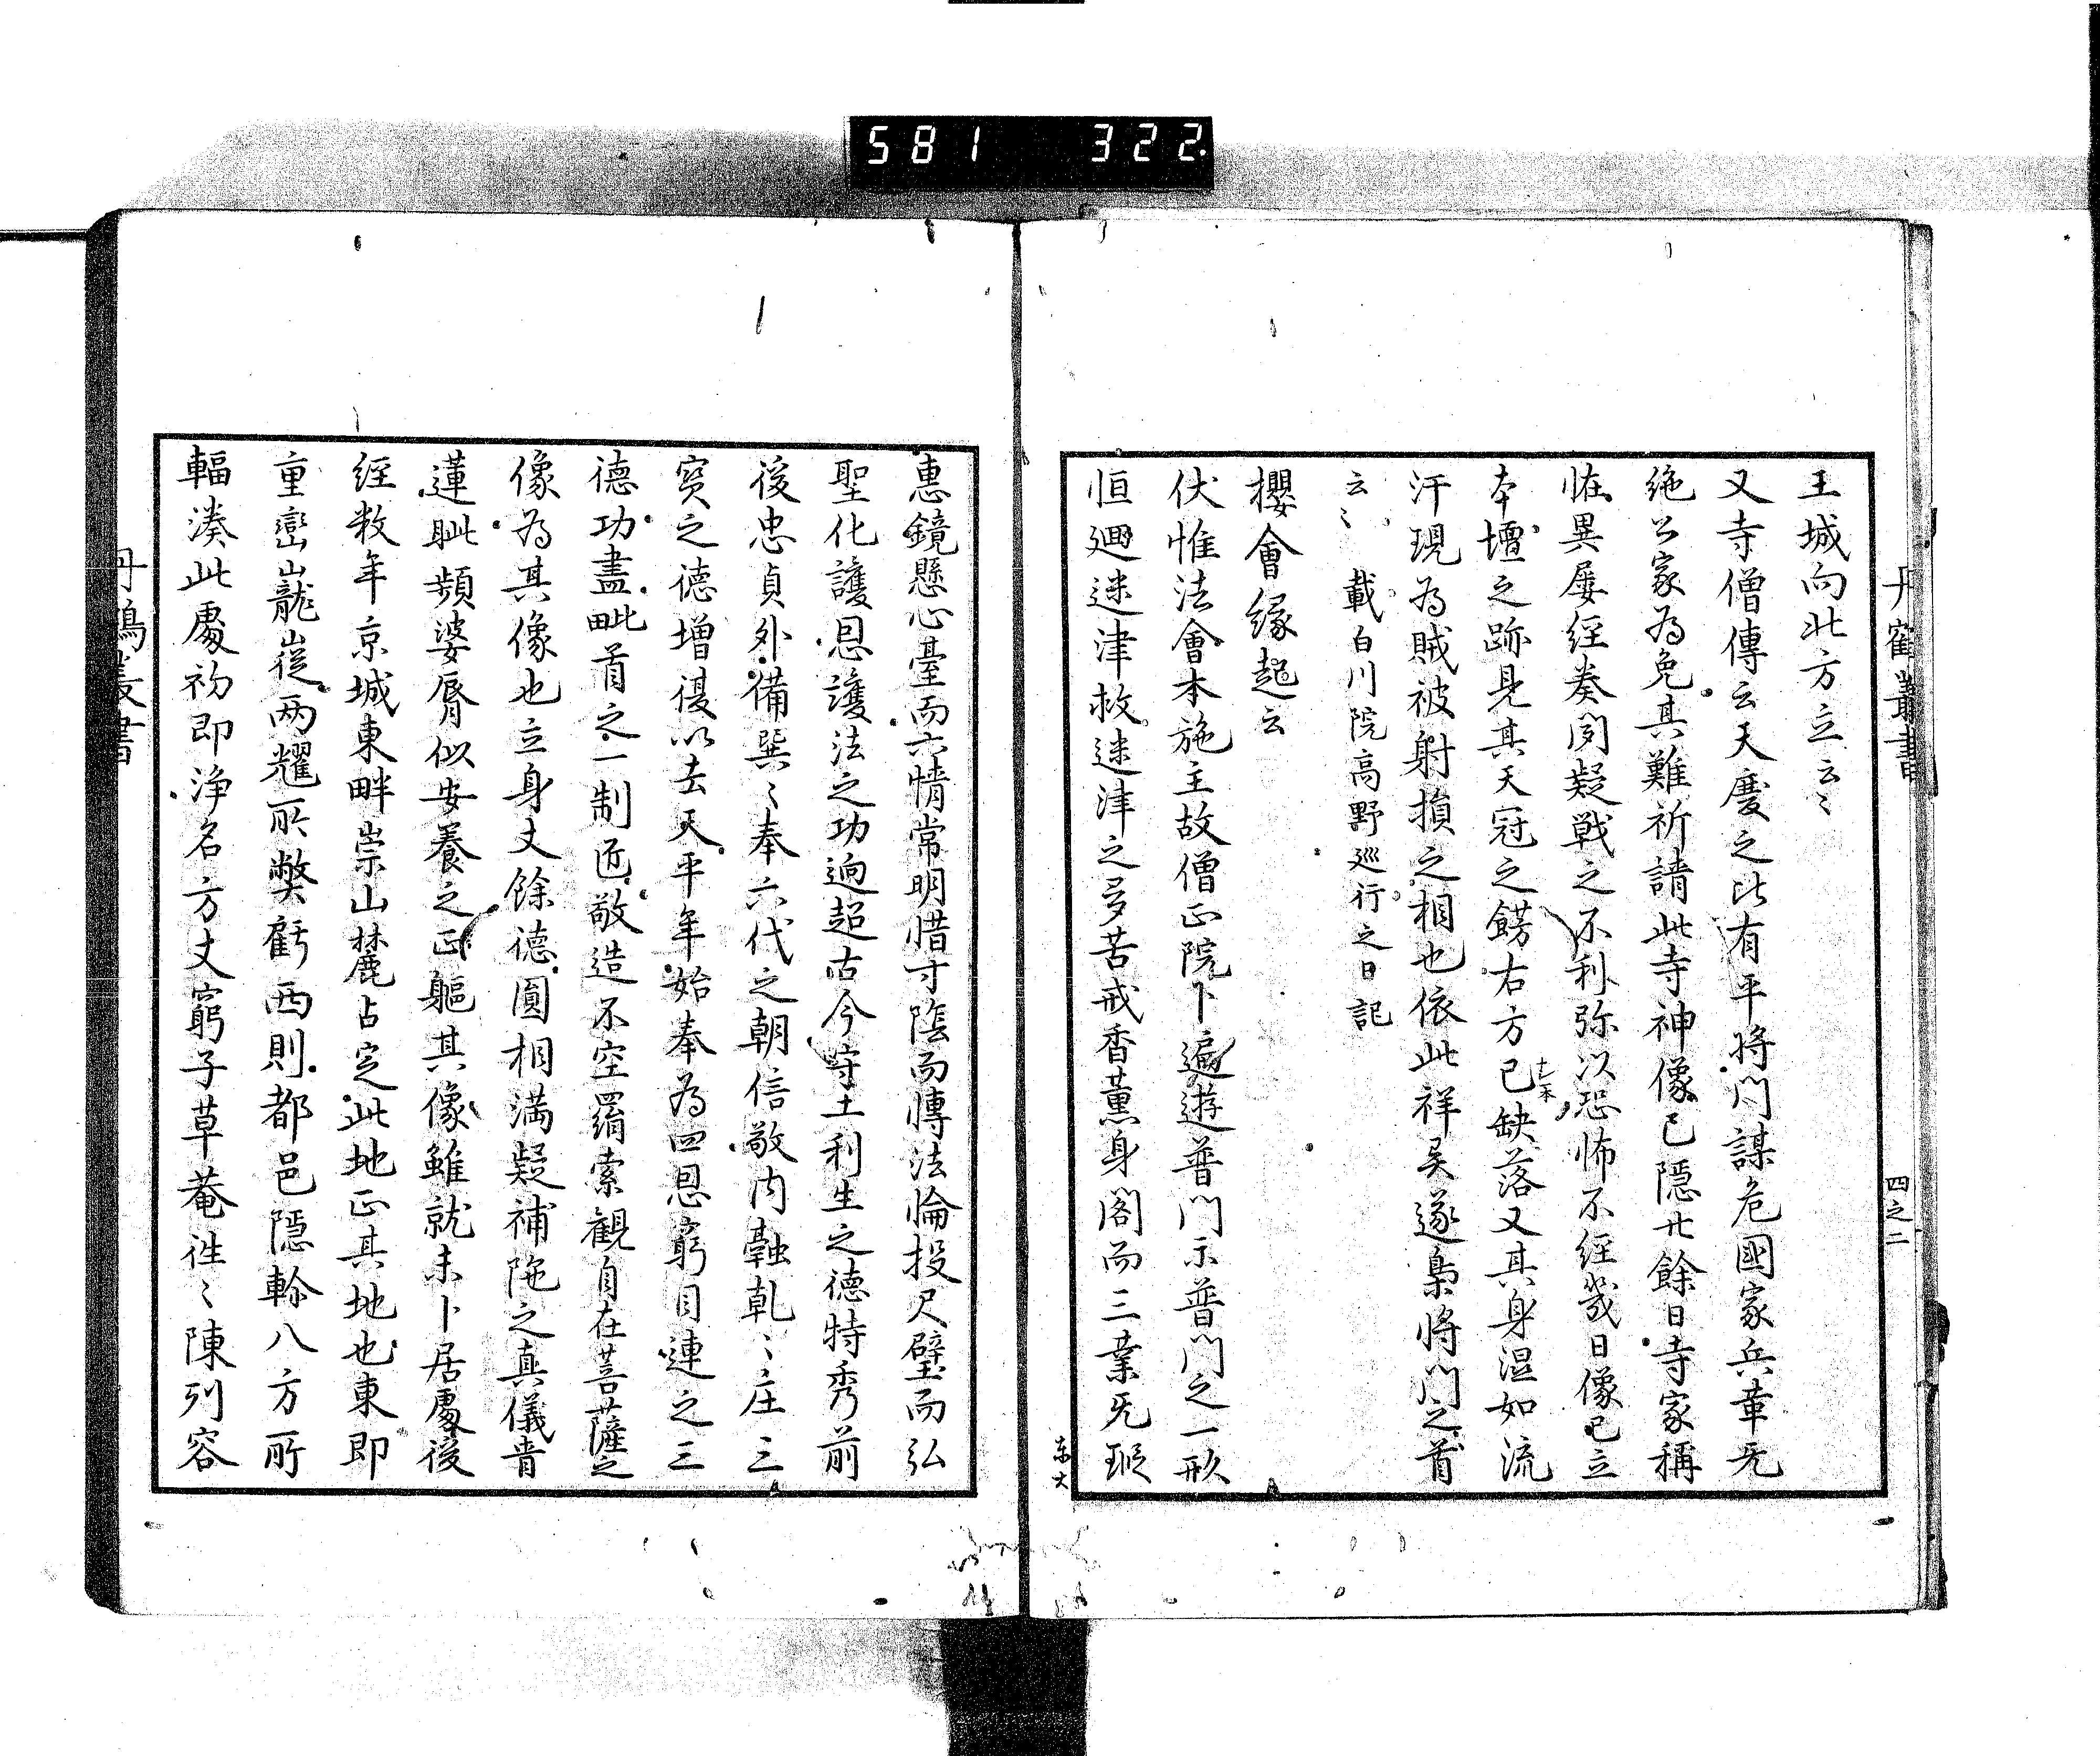 581 322
丹鶴叢書
四之二
王城向北方立云〻
又寺僧傳云天慶之比有平将門謀危國家兵革无
絶公家為免其難祈請此寺神像已隠廿餘日寺家稱
恠異屡経奏聞疑戦之不利弥以恐怖不経幾日像已立
本壇之跡見其天冠之餝右方已缺落又其身湿如流
汗現為賊被射損之相也依此祥矣遂梟将門之首
云〻 載白川院高野巡行之日記
櫻會縁起云
伏惟法會本施主故僧正院下遍遊普門示普門之一形
恒廻迷津救迷津之多苦戒香薫身閣而三業无瑕
東大
惠鏡懸心臺而六情常明惜寸陰而轉法倫投尺璧而弘
聖化護恩護法之功逈超古今守土利生之德特秀前
後忠貞外備巽〻奉六代之朝信敬内融乹〻庄三
寳之德増復以去天平年始奉為四恩窮目連之三
德功盡毗首之一制匠敬造不空羂索觀自在菩薩之
像為其像也立身丈餘德圓相満疑補陁之真儀昔
蓮眦頻婆脣似安養之正軀其像雖就未卜居處後
経数年京城東畔崇山麓占定此地正其地也東即
重巒巃嵸两耀所弊虧西則都邑隠軫八方所
輻湊此處初即浄名方丈窮子草菴徃〻陳列容
丹鶴叢書